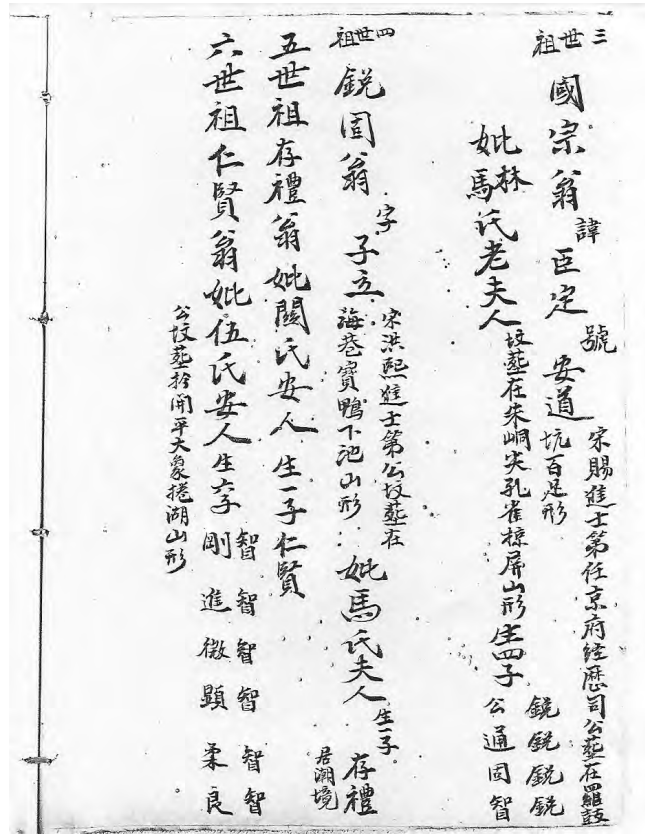 三世祖 國宗翁 諱臣定 號安道 宋賜進士第任京府经歷司公塟在羅鼓坑百足形
妣林馬氏老夫人 坟塟在朱峒尖孔雀椋屏山形 生四子 銳公 銳通 銳固 銳智
四世祖 銳固翁 字子立 宋洪熙進士第公坟塟在海巷寶鴨下池山形 妣馬氏夫人 生一子 存禮 居潮境
五世祖存禮翁妣關氏安人生一子仁賢
六世祖仁賢翁妣伍氏安人生六子 智剛 智進 智微 智顯 智柔 智良
公坟塟於開平大象捲湖山形